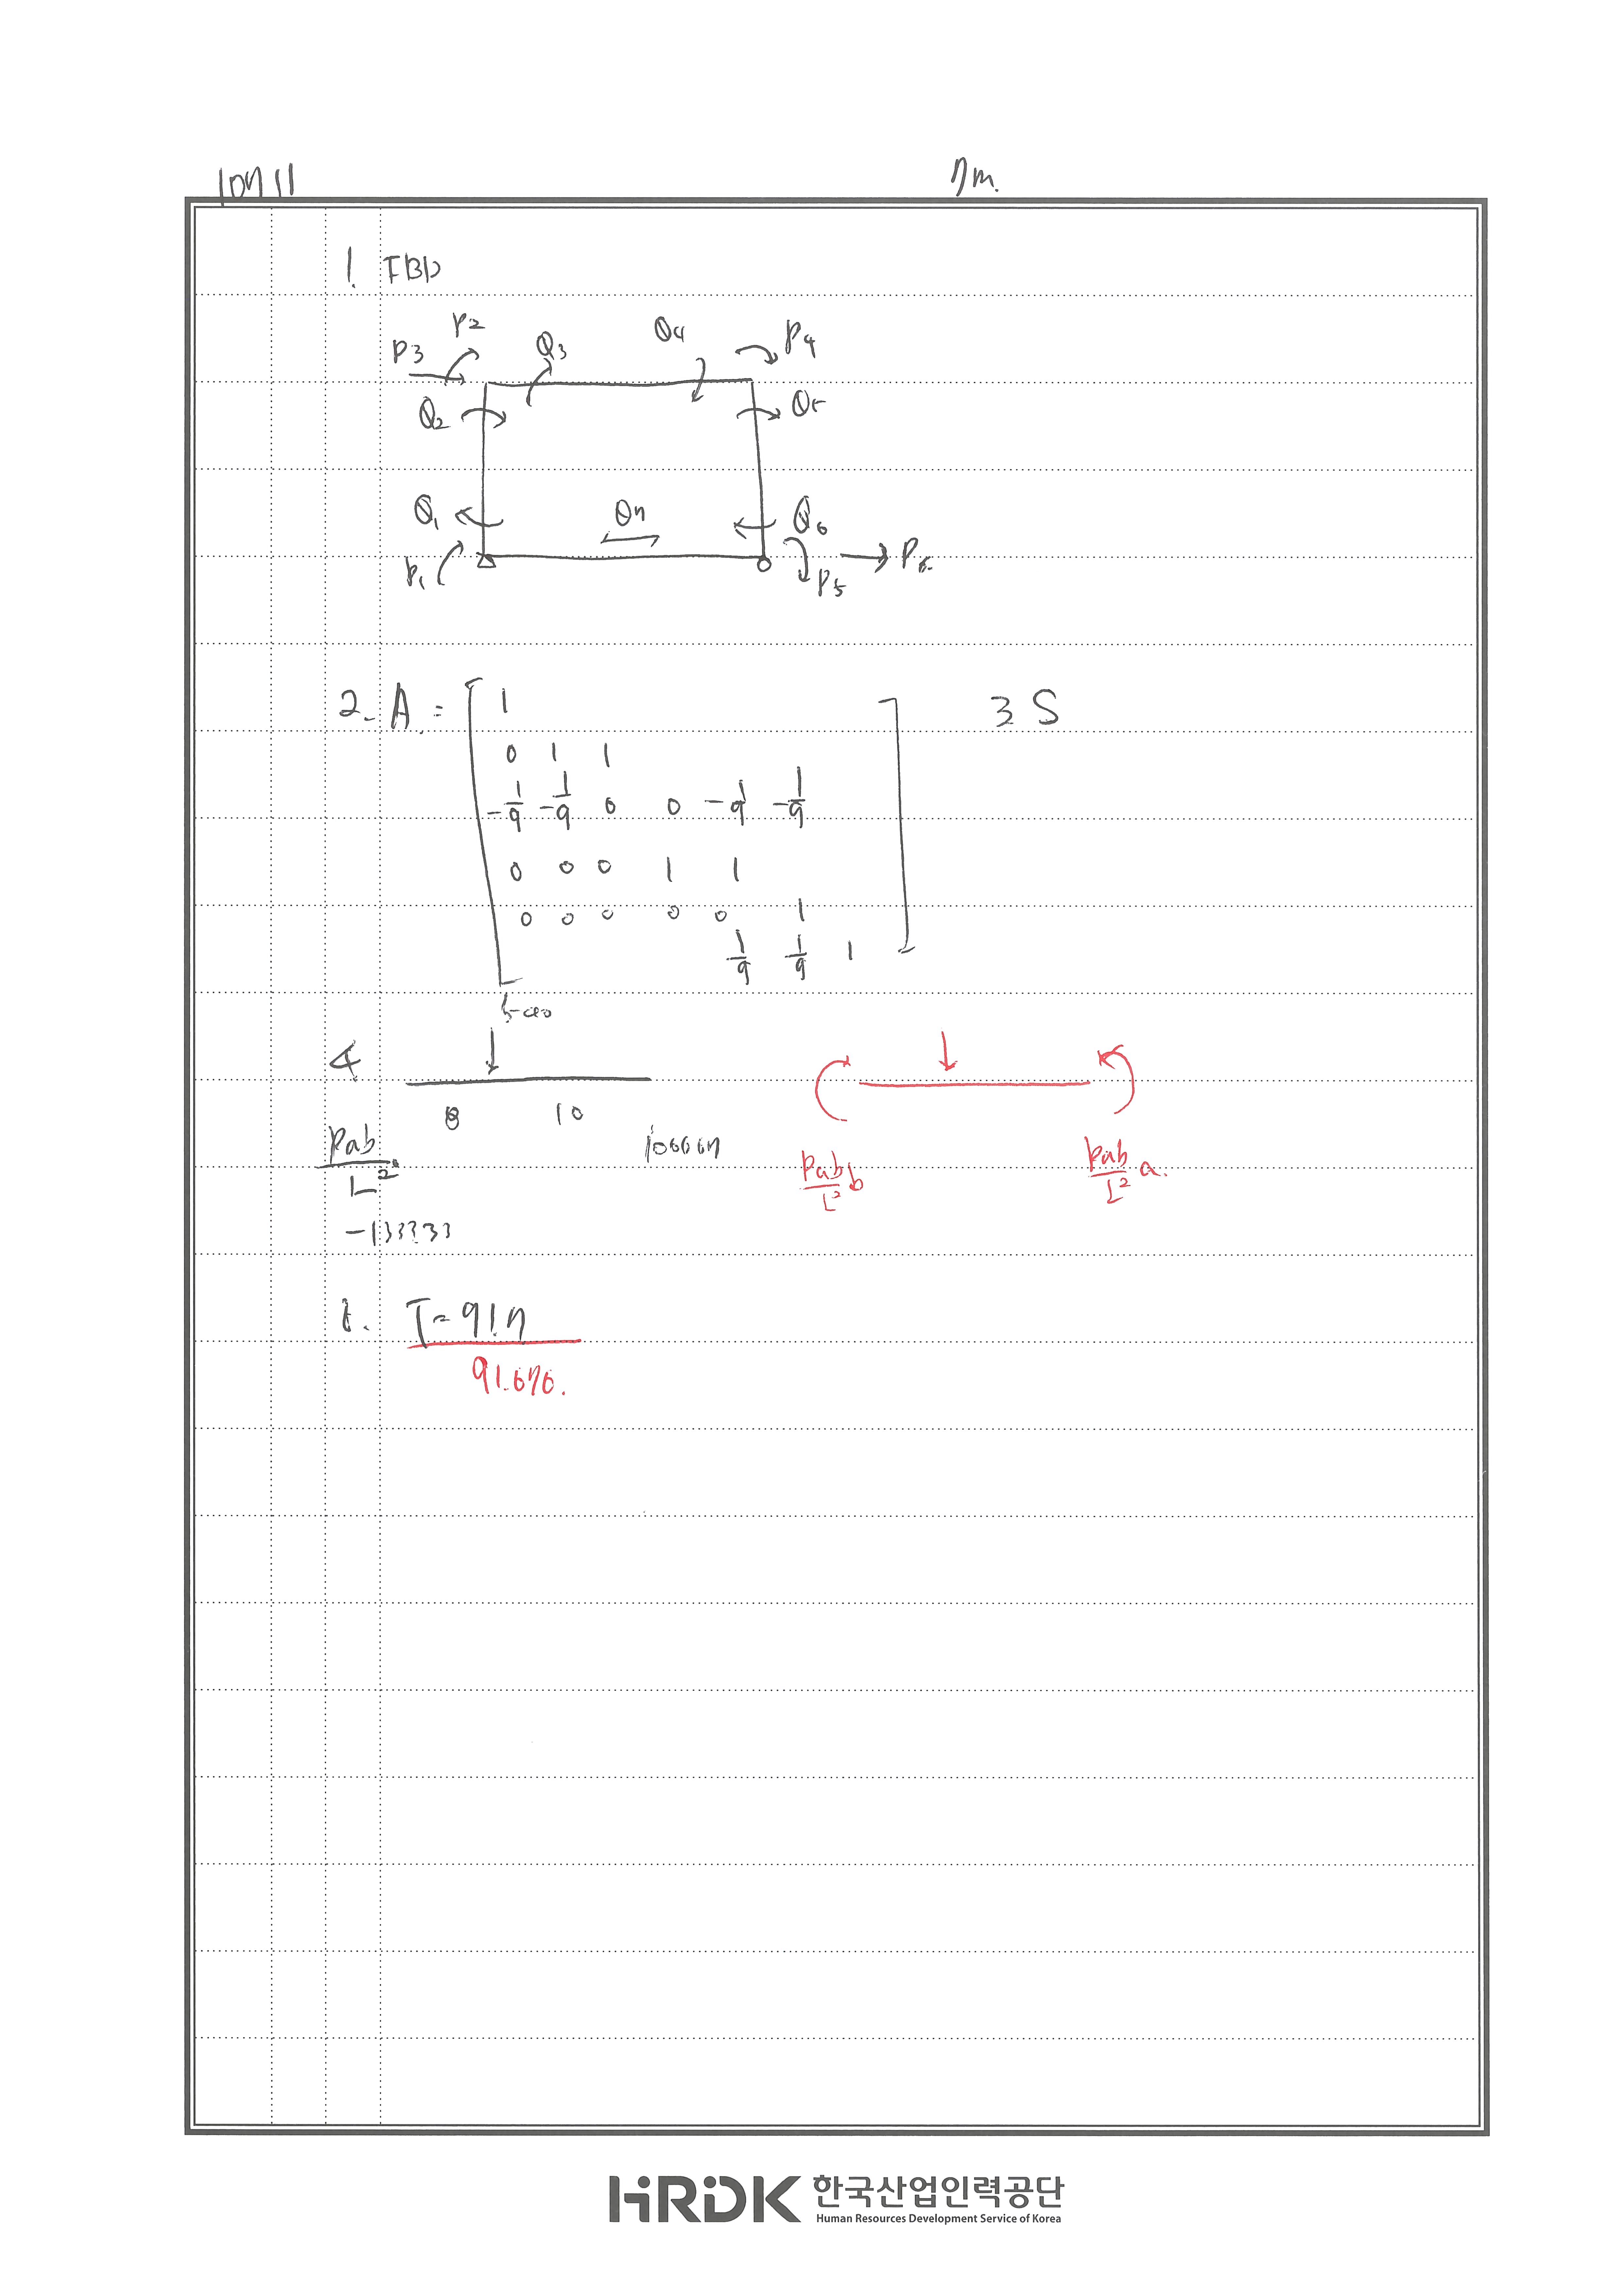 107 11
7m.
1. FBD
P2
P3 Q3 Q4 P4
Q2 Q5
Q1 Q7 Q6
P1 P5 P6
2. A = 3 S
1
0 1 1
-1/9 -1/9 0 0 -1/9 -1/9
0 0 0 1 1
0 0 0 0 0 1
1/9 1/9 1
4
8 10
Pab/L²
Pab/L² b
Pab/L² a.
-133333
T = 91.7
91.676.
HRDK 한국산업인력공단
Human Resources Development Service of Korea